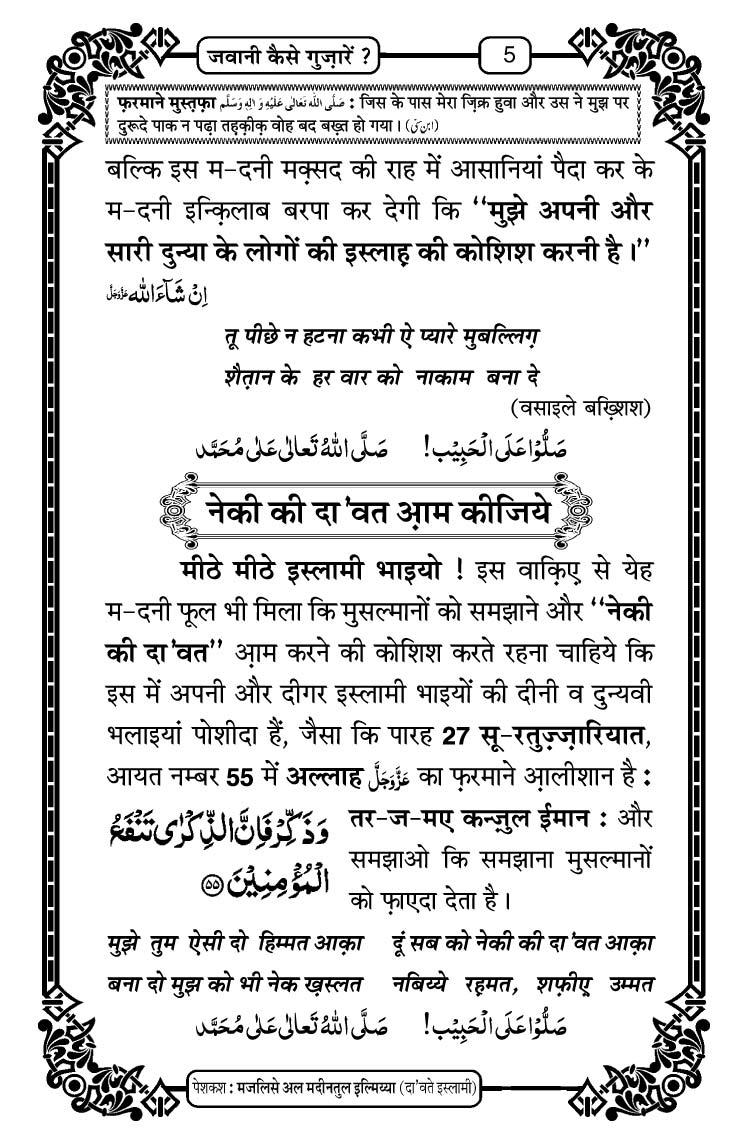 जवानी कैसे गुज़ारें ?
5
फ़रमाने मुस्तफ़ा صَلَّى اللهُ تَعَالٰى عَلَيْهِ وَاٰلِهٖ وَسَلَّم : जिस के पास मेरा ज़िक्र हुवा और उस ने मुझ पर
दुरूदे पाक न पढ़ा तह़क़ीक़ वोह बद बख़्त हो गया । (ابن سنی)
बल्कि इस म-दनी मक़्सद की राह में आसानियां पैदा कर के
म-दनी इन्क़िलाब बरपा कर देगी कि ‘‘मुझे अपनी और
सारी दुन्या के लोगों की इस्लाह़ की कोशिश करनी है ।’’
اِنْ شَآءَاللّٰه عَزَّوَجَلَّ
तू पीछे न हटना कभी ऐ प्यारे मुबल्लिग़
शैत़ान के हर वार को नाकाम बना दे
(वसाइले बख़्शिश)
صَلُّوْا عَلَى الْحَبِيْب! صَلَّى اللهُ تَعَالٰى عَلٰى مُحَمَّد
नेकी की दा'वत आ़म कीजिये
मीठे मीठे इस्लामी भाइयो ! इस वाक़िए से येह
म-दनी फूल भी मिला कि मुसल्मानों को समझाने और ‘‘नेकी
की दा'वत’’ आ़म करने की कोशिश करते रहना चाहिये कि
इस में अपनी और दीगर इस्लामी भाइयों की दीनी व दुन्यवी
भलाइयां पोशीदा हैं, जैसा कि पारह 27 सू-रतुज़्ज़ारियात,
आयत नम्बर 55 में अल्लाह عَزَّوَجَلَّ का फ़रमाने आ़लीशान है :
وَذَكِّرْ فَاِنَّ الذِّكْرٰى تَنْفَعُ
الْمُؤْمِنِيْنَ ﴿۵۵﴾
तर-ज-मए कन्ज़ुल ईमान : और
समझाओ कि समझाना मुसल्मानों
को फ़ाएदा देता है ।
मुझे तुम ऐसी दो हिम्मत आक़ा दूं सब को नेकी की दा'वत आक़ा
बना दो मुझ को भी नेक ख़स्लत नबिय्ये रह़मत, शफ़ीए़ उम्मत
صَلُّوْا عَلَى الْحَبِيْب! صَلَّى اللهُ تَعَالٰى عَلٰى مُحَمَّد
पेशकश : मजलिसे अल मदीनतुल इल्मिय्या (दा'वते इस्लामी)